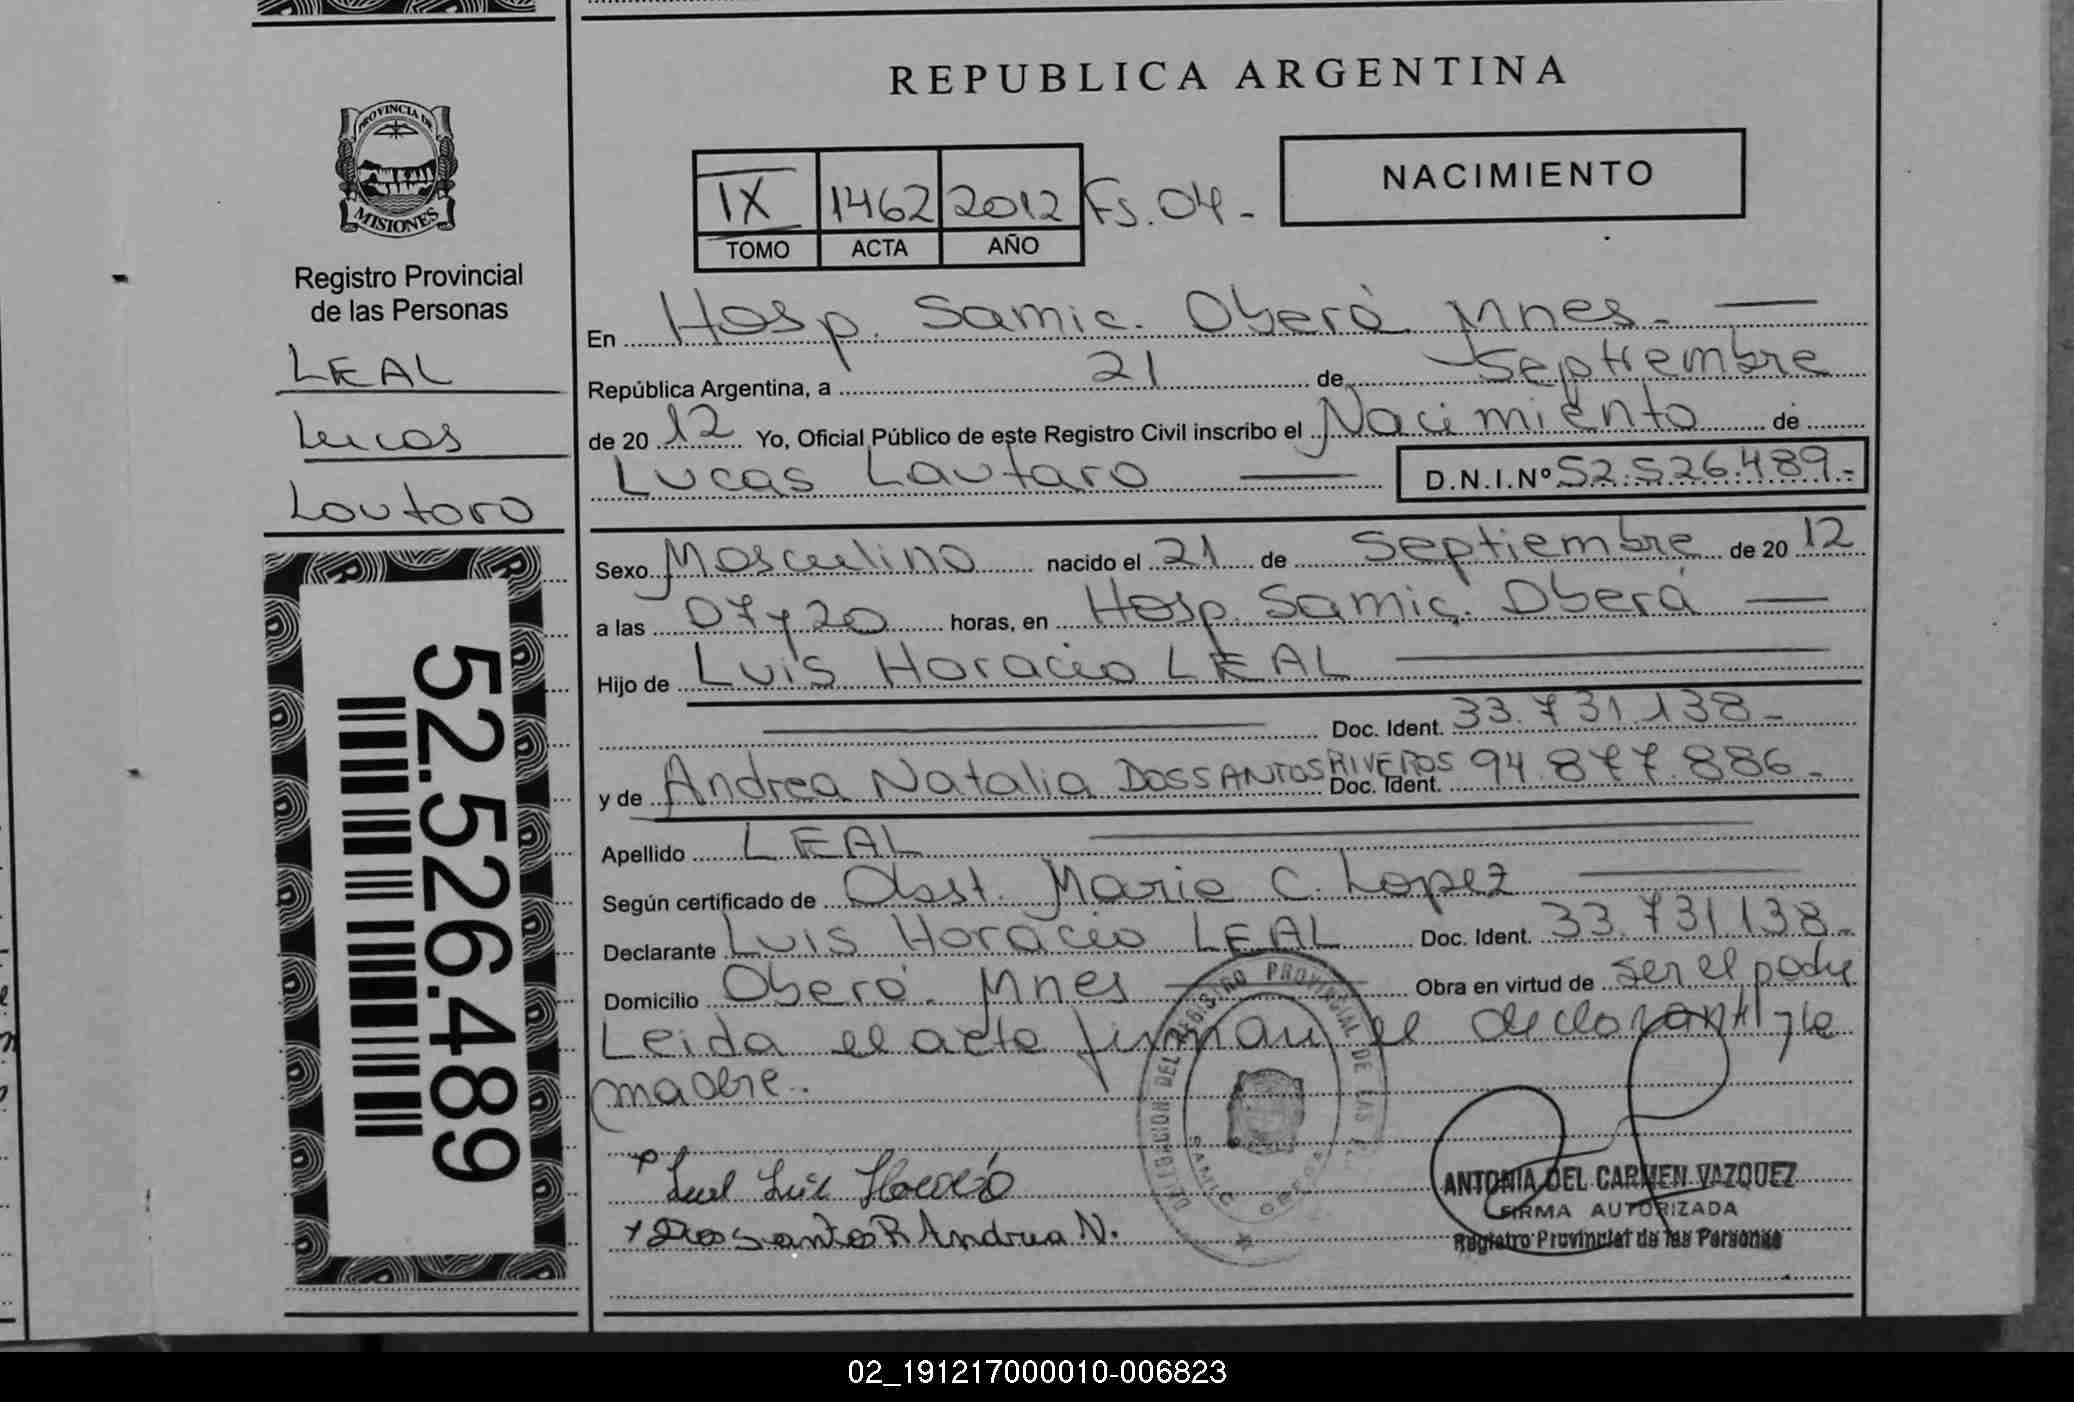 REPUBLICA ARGENTINA
NACIMIENTO
IX 1462 2012 Fs.04.-
TOMO ACTA AÑO
PROVINCIA DE
MISIONES
Registro Provincial
de las Personas
LEAL
Lucas
Lautaro
52.526.489
En Hosp. Samic. Oberá Mnes.
República Argentina, a 21 de Septiembre
de 2012 Yo, Oficial Público de este Registro Civil inscribo el Nacimiento de
Lucas Lautaro D.N.I.Nº 52.526.489.-
Sexo Masculino nacido el 21 de Septiembre de 2012
a las 07 y 20 horas, en Hosp. Samic. Oberá
Hijo de Luis Horacio LEAL
Doc. Ident. 33.731.138.-
y de Andrea Natalia DOSSANTOS RIVEROS Doc. Ident. 94.877.886.-
Apellido LEAL
Según certificado de Obst. Maria C. Lopez
Declarante Luis Horacio LEAL Doc. Ident. 33.731.138.-
Domicilio Oberá. Mnes Obra en virtud de ser el padre
Leida el acta firman el declarante y la
madre.
Leal Luis Horacio
Dossantos R Andrea N.
DELEGACION DEL REGISTRO PROVINCIAL DE LAS
SAMIC OBERA
ANTONIA DEL CARMEN VAZQUEZ
FIRMA AUTORIZADA
Registro Provincial de las Personas
02_191217000010-006823